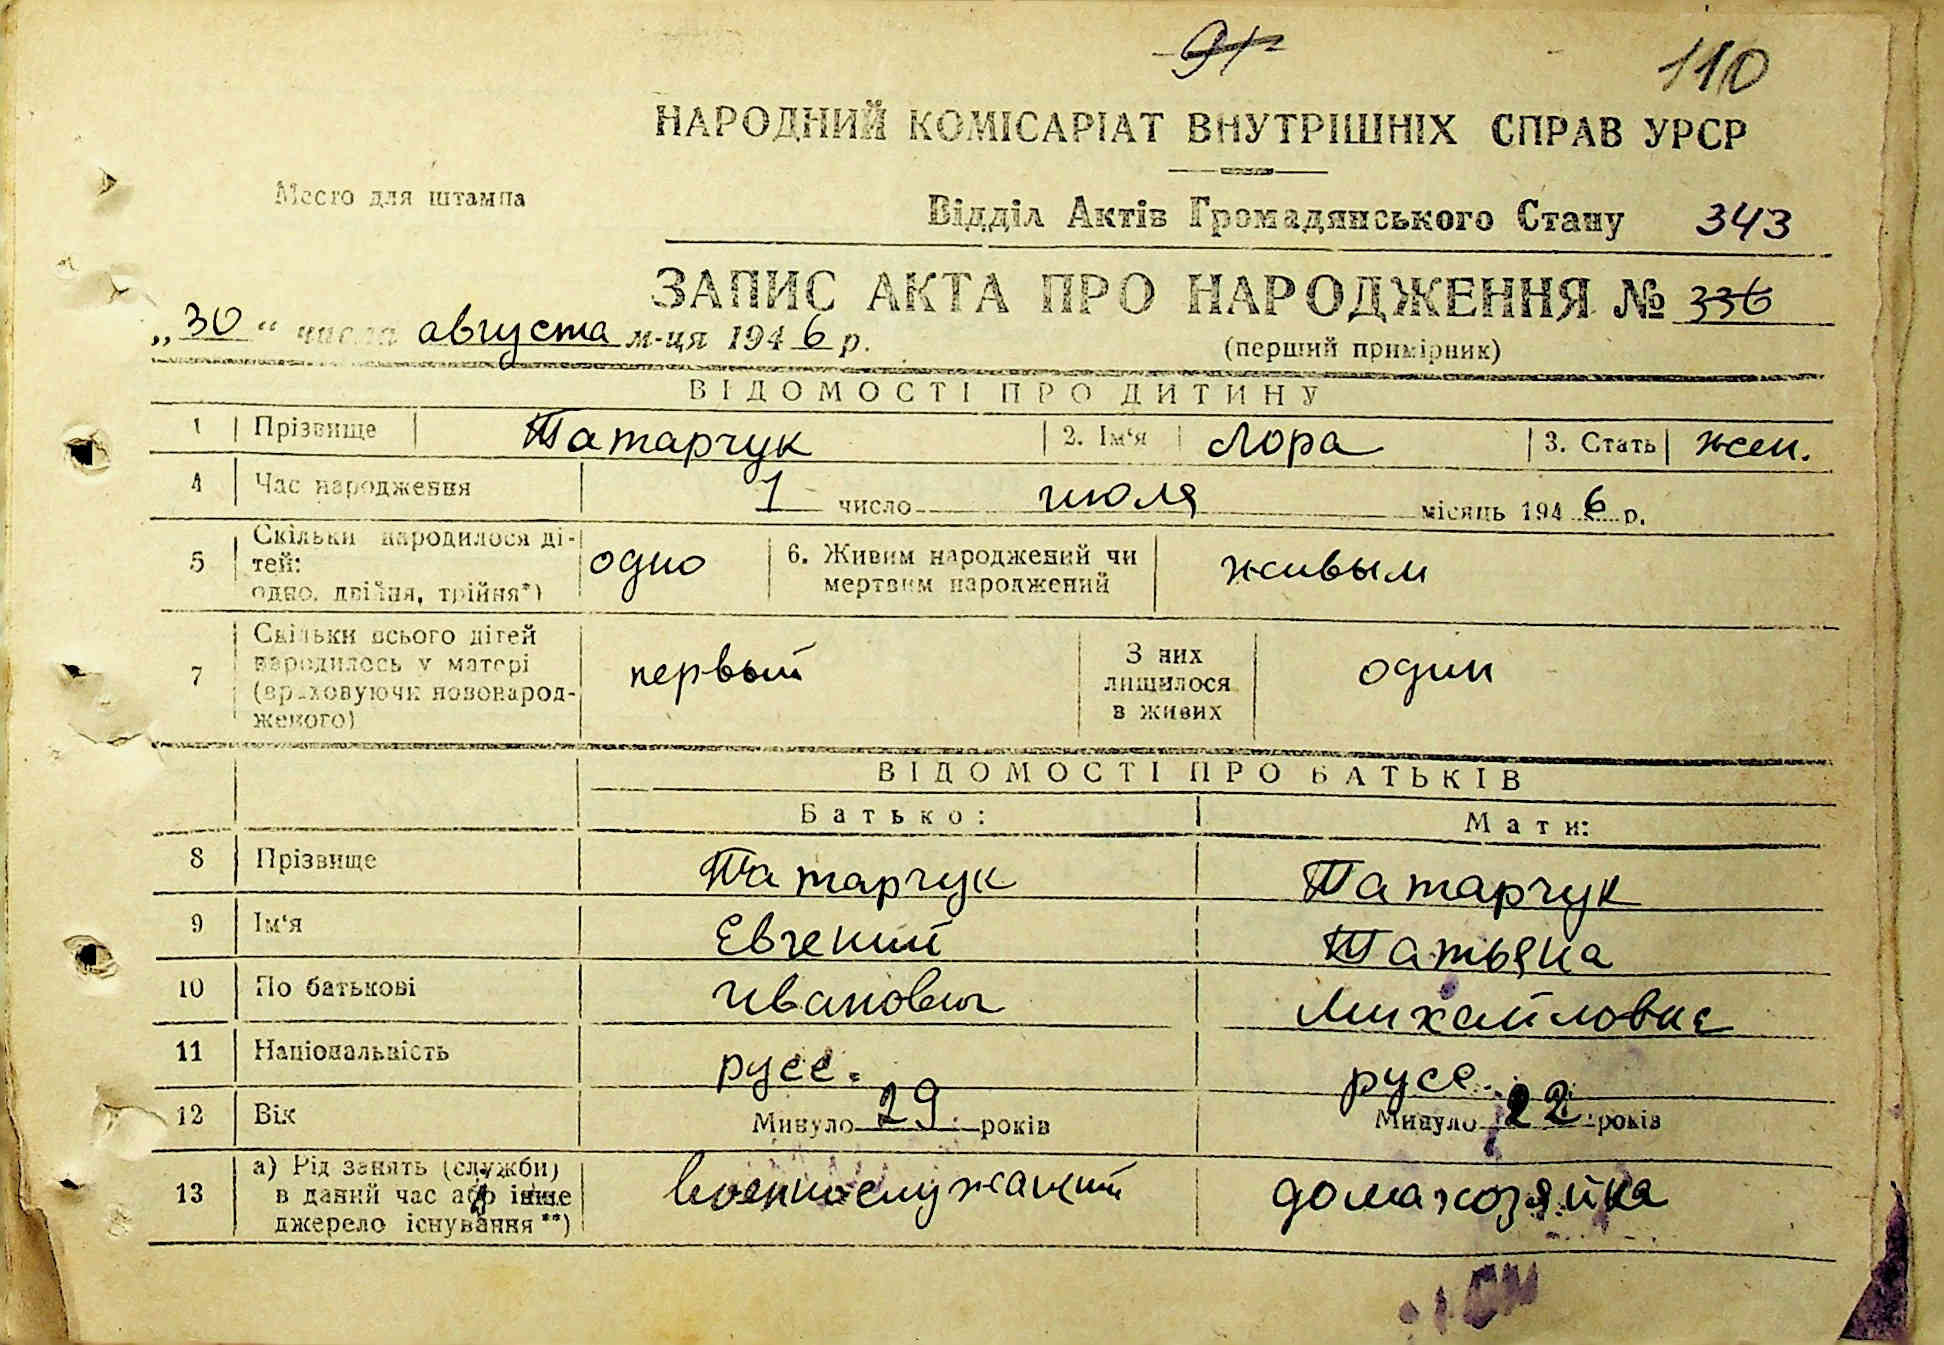 91
110
НАРОДНИЙ КОМІСАРІАТ ВНУТРІШНІХ СПРАВ УРСР
Место для штампа
Відділ Актів Громадянського Стану 343
ЗАПИС АКТА ПРО НАРОДЖЕННЯ № 336
„30“ числа августа м-ця 1946 р.
(перший примірник)
ВІДОМОСТІ ПРО ДИТИНУ
1 Прізвище Татарчук 2. Ім'я Лора 3. Стать жен.
4 Час народження 1 число июля місяць 1946 р.
5 Скільки народилося дітей: одно, двійня, трійня*) одно 6. Живим народжений чи мертвим народжений живым
7 Скільки всього дітей народилось у матері (враховуючи новонародженого) первый З них лишилося в живих один
ВІДОМОСТІ ПРО БАТЬКІВ
Батько: Мати:
8 Прізвище Татарчук Татарчук
9 Ім'я Евгений Татьяна
10 По батькові Иванович Михайловна
11 Національність русс. русс.
12 Вік Минуло 29 років Минуло 22 років
13 а) Рід занять (служби) в даний час або інше джерело існування**) военнослужащий домахозяйка